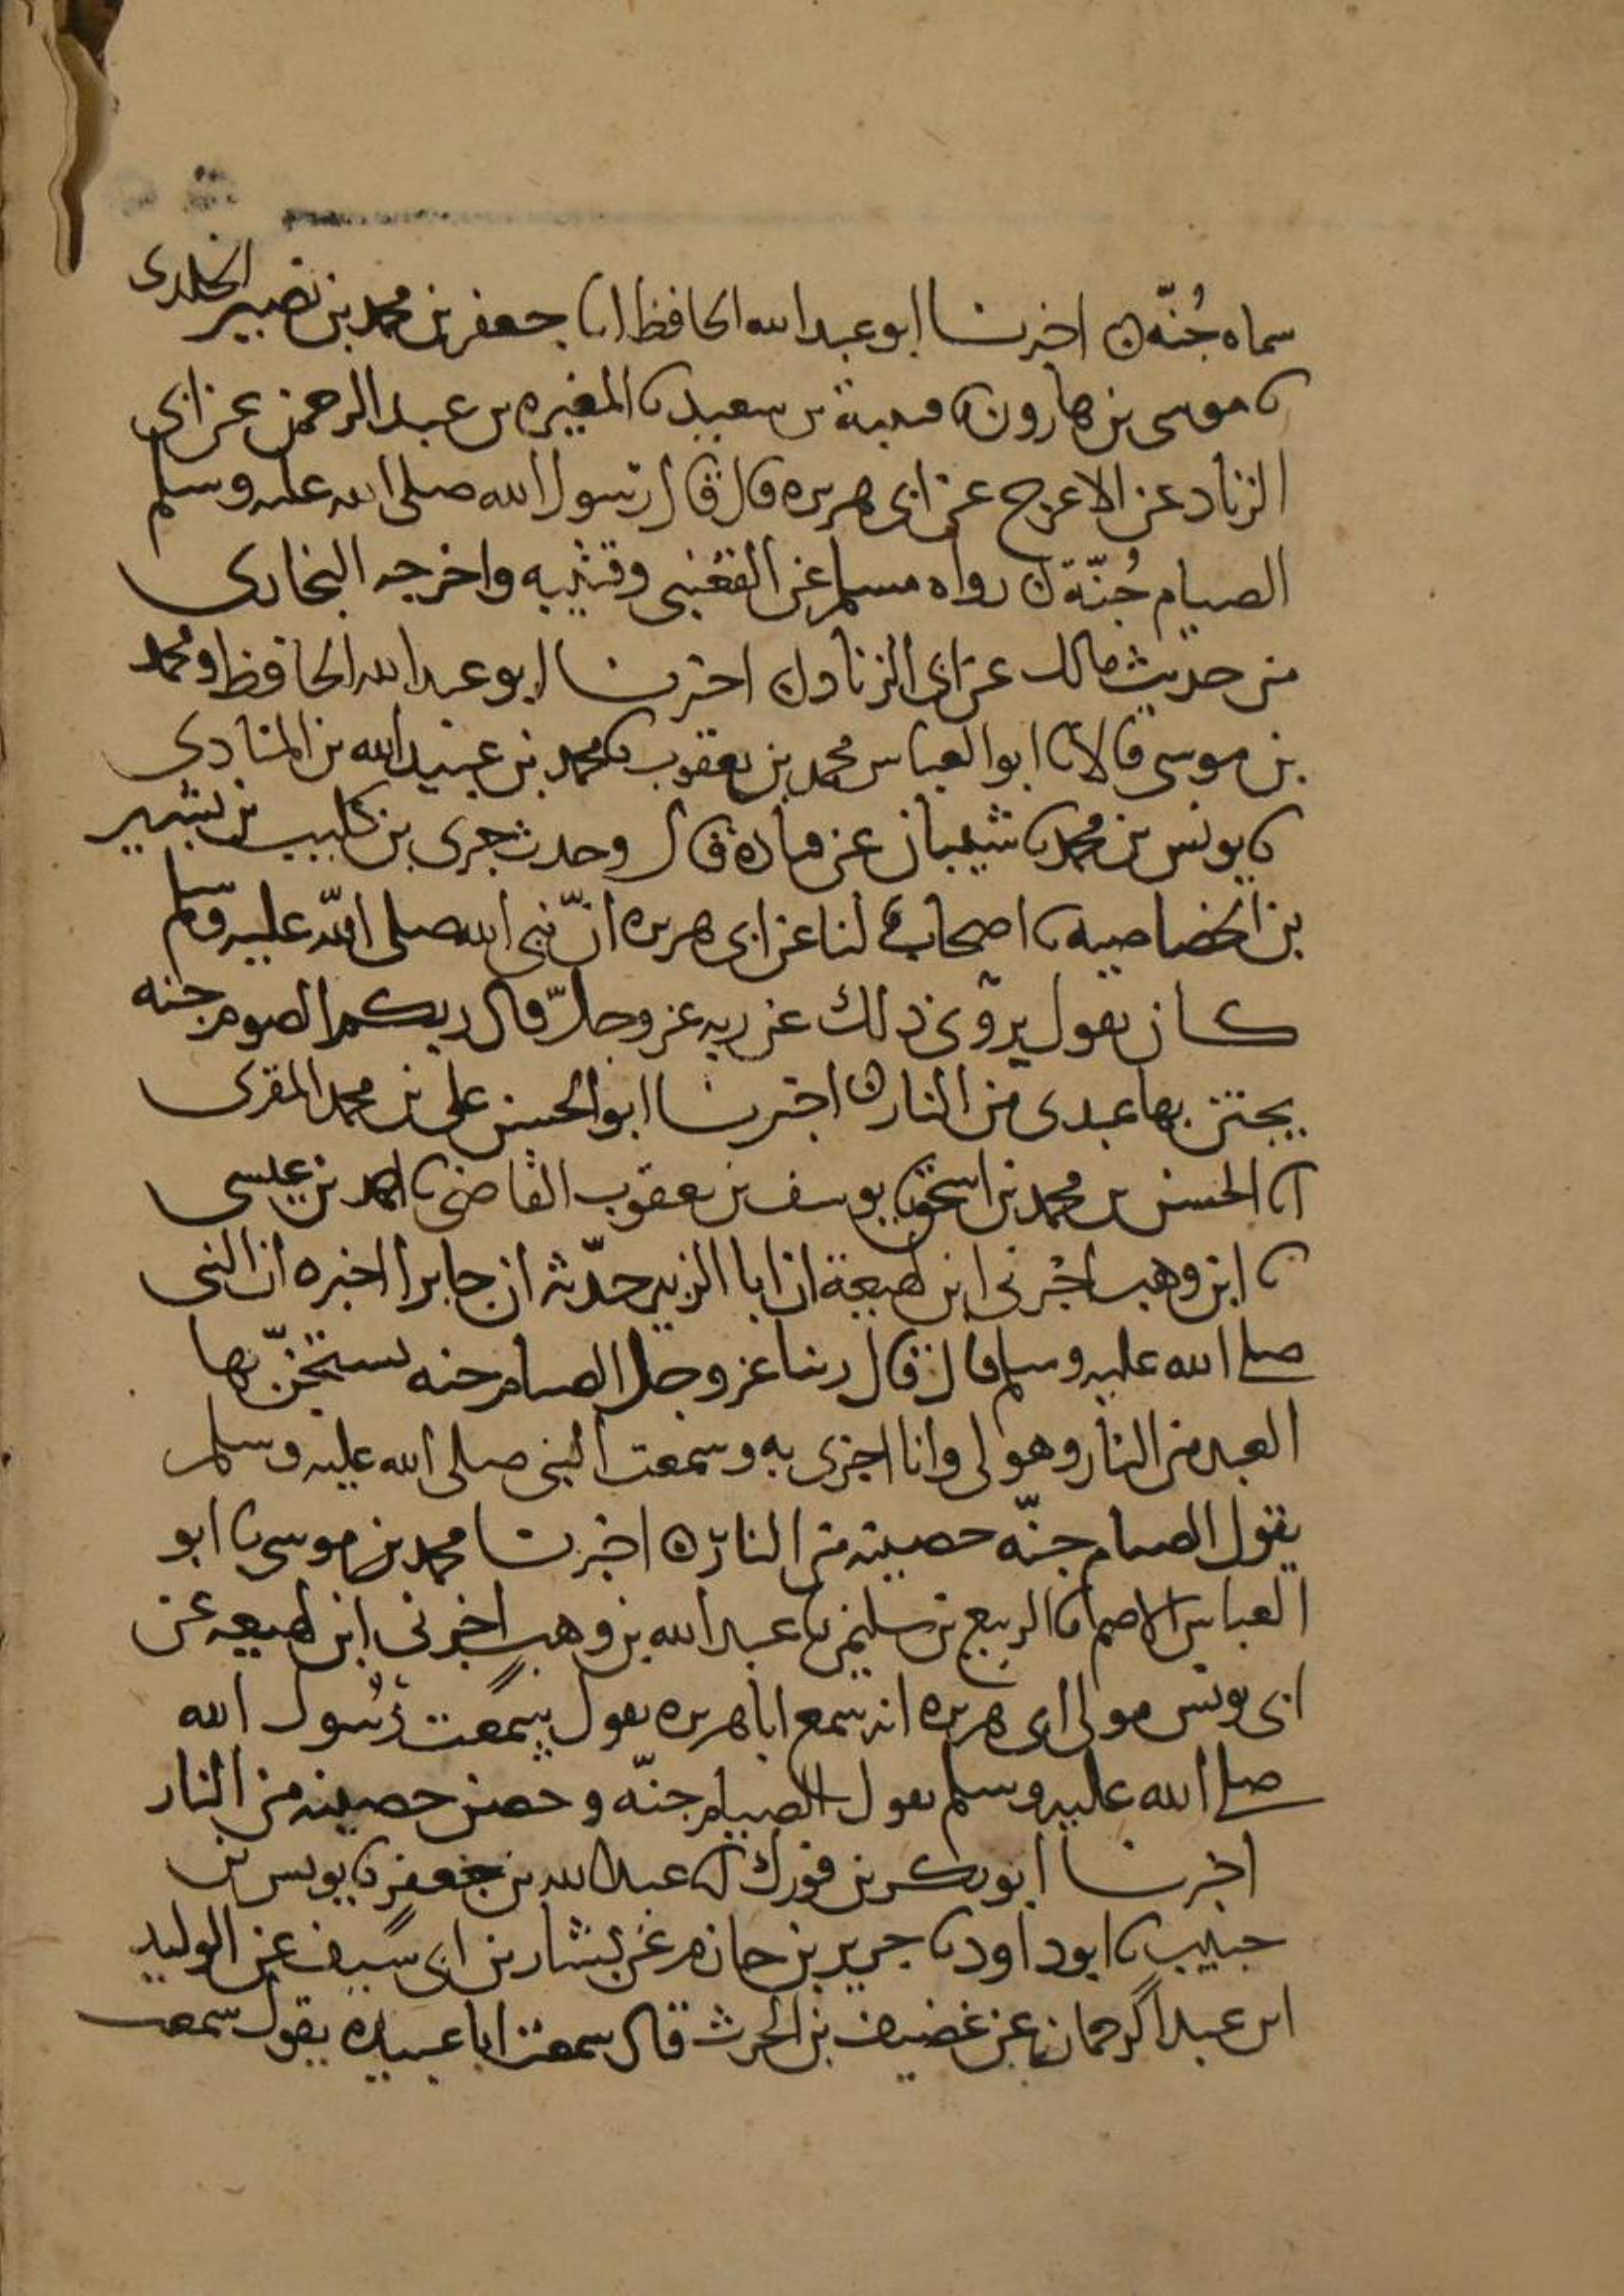 سماه جُنّة ن اخبرنا ابو عبد الله الحافظ انا جعفر بن محمد بن نصير الخلدى
نا موسى بن هارون نا قتيبة بن سعيد نا المغيره بن عبد الرحمن عن ابى
الزناد عن الاعرج عن ابى هريره قال قال رسول الله صلى الله عليه وسلم
الصيام جُنّة ن رواه مسلم عن القعنبى وقتيبه واخرجه البخارى
من حديث مالك عن ابى الزناد ن اخبرنا ابو عبد الله الحافظ ومحمد
بن موسى قالا نا ابو العباس محمد بن يعقوب نا محمد بن عبيد الله بن المنادى
نا يونس بن محمد نا شيبان عن قتاده قال وحدث جرى بن كليب بن بشير
بن الخصاصيه نا اصحاب لنا عن ابى هريره انّ نبى الله صلى الله عليه وسلم
كان يقول يروى ذلك عن ربه عز وجلّ قال ربكم الصوم جنه
يجتن بها عبدى من النار ن اخبرنا ابو الحسن على بن محمد المقرى
انا الحسن بن محمد بن اسحق نا يوسف بن يعقوب القاضى نا احمد بن عيسى
نا ابن وهب اخبرنى ابن لهيعة ان ابا الزبير حدّثه ان جابرا اخبره ان النبى
صلى الله عليه وسلم قال قال ربنا عز وجل الصيام جنه يستجنّ بها
العبد من النار وهو لى وانا اجزى به وسمعت النبى صلى الله عليه وسلم
يقول الصيام جنّه حصينه من النار ن اخبرنا محمد بن موسى نا ابو
العباس الاصم نا الربيع بن سليمن نا عبد الله بن وهب اخبرنى ابن لهيعه عن
ابى يونس مولى ابى هريره انه سمع ابا هريره يقول سمعت رسول الله
صلى الله عليه وسلم يقول الصيام جنّه وحصن حصينه من النار
اخبرنا ابو بكر بن فورك انا عبد الله بن جعفر نا يونس بن
حبيب نا ابو داود نا جرير بن حازم عن بشار بن ابى سيف عن الوليد
ابن عبد الرحمان عن غضيف بن الحرث قال سمعت ابا عبيده يقول سمعت